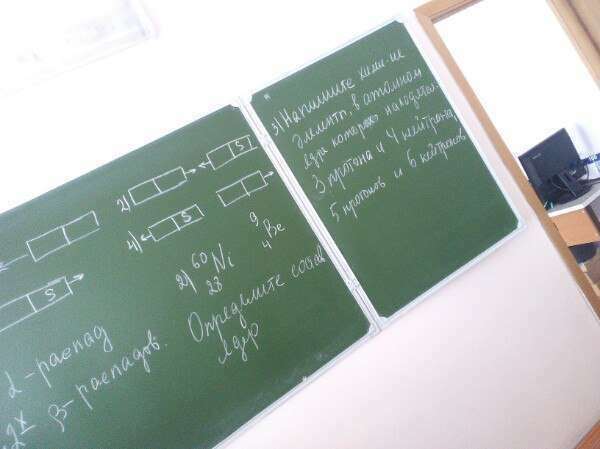 2)
S
4)
S
S
2) 60 Ni 9 Be
28 4
Определите состав
ядер
α-распад
2х β-распадов.
3) Напишите
элемент, в атомном
ядре которых находятся
3 протона и 4 нейтрона,
5 протонов и 6 нейтронов